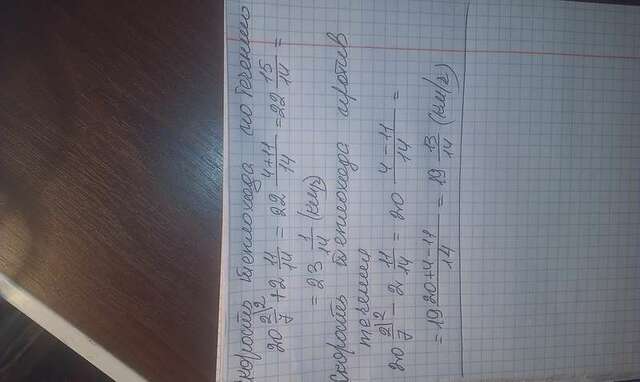 скорость теплохода по течению
20 2/7 \2 + 2 11/14 = 22 (4+11)/14 = 22 15/14 =
= 23 1/14 (км/ч)
скорость теплохода против
течения
20 2/7 \2 - 2 11/14 = 20 (4-11)/14 =
= 19 (20+4-11)/14 = 19 13/14 (км/ч)